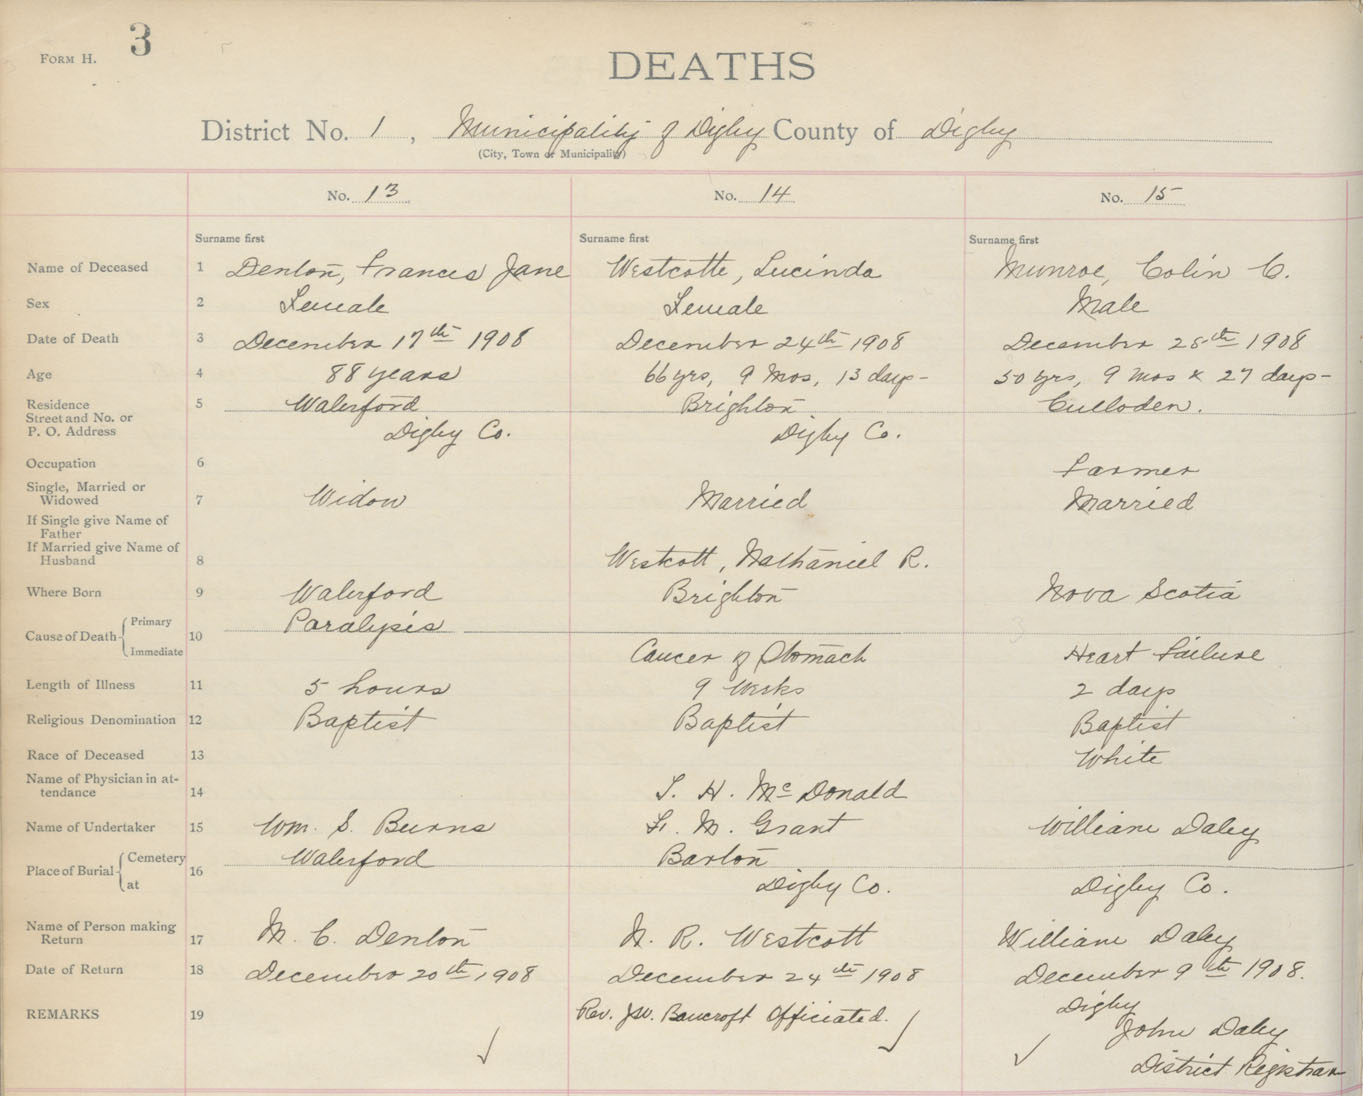 FORM H. 3
DEATHS
District No. 1, Municipality of Digby County of Digby
(City, Town or Municipality)
No. 13 No. 14 No. 15
Surname first Surname first Surname first
Name of Deceased 1 Denton, Frances Jane Westcotte, Lucinda Munroe, Colin C.
Sex 2 Female Female Male
Date of Death 3 December 17th 1908 December 24th 1908 December 25th 1908
Age 4 88 years 66 yrs, 9 Mos, 13 days 50 yrs, 9 mos & 27 days
Residence 5 Waterford Brighton Culloden.
Street and No. or
P. O. Address Digby Co. Digby Co.
Occupation 6 Farmer
Single, Married or
Widowed 7 Widow Married Married
If Single give Name of
Father
If Married give Name of
Husband 8 Westcott, Nathaniel R.
Where Born 9 Waterford Brighton Nova Scotia
Cause of Death Primary 10 Paralysis
Immediate Cancer of Stomach Heart Failure
Length of Illness 11 5 hours 9 weeks 2 days
Religious Denomination 12 Baptist Baptist Baptist
Race of Deceased 13 White
Name of Physician in at-
tendance 14 McDonald
Name of Undertaker 15 Wm. S. Burns F. M. Grant William Daley
Place of Burial Cemetery 16 Waterford Barton
at Digby Co. Digby Co.
Name of Person making
Return 17 M. C. Denton N. R. Westcott William Daley
Date of Return 18 December 20th, 1908 December 24th 1908 December 9th 1908.
REMARKS 19 Rev. J.W. Bancroft Officiated. Digby
John Daley
District Registrar